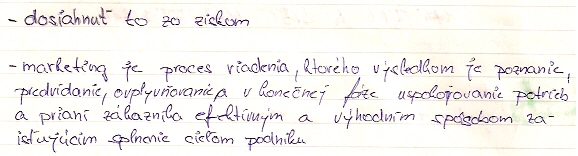 - dosiahnuť to zo ziskom
- marketing je proces riadenia, ktorého výsledkom je poznanie,
predvídanie, ovplyvňovanie a v konečnej fáze uspokojovanie potrieb
a prianí zákazníka efektívnym a výhodným spôsobom za-
isťujúcim splnenie cieľom podniku